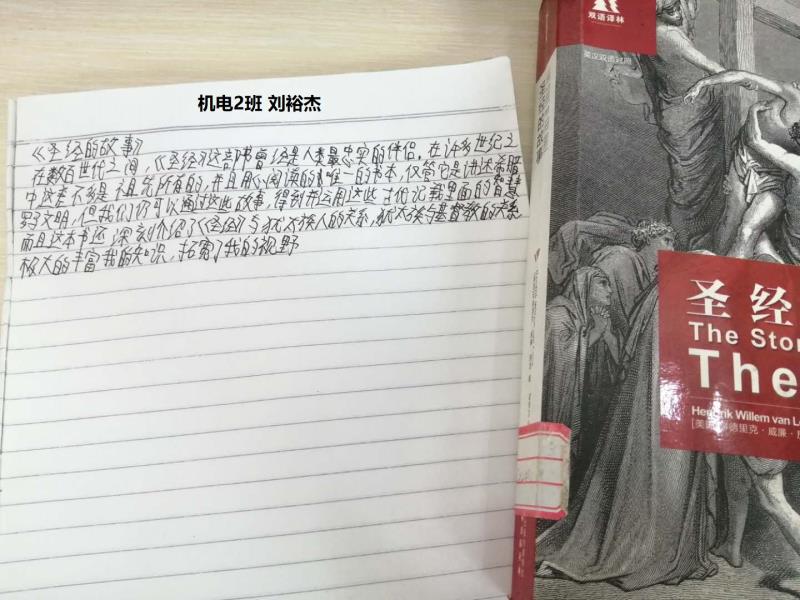 机电2班 刘裕杰
《圣经的故事》
在数百世代之间，《圣经》这部书曾经是人类最忠实的伴侣，在许多世纪之
中这差不多是祖先所有的，并且用心阅读的唯一的书本，仅管它是讲述希腊
文明，但我们仍可以通过这些故事，得到并运用这些古代记载里面的智慧
而且这本书还深刻介绍了《圣经》与犹太族人的关系，犹太族与基督教的关系
极大的丰富我的知识，拓宽了我的视野
双语译林
英汉双语对照
圣经
The Stor
The
Hendrik Willem van Lo
[美国] 德里克·威廉·